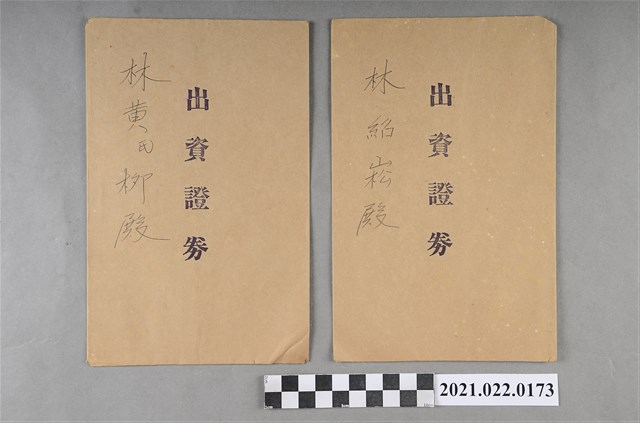 出資證券
林黄氏柳殿
出資證券
林紹崧殿
2021.022.0173